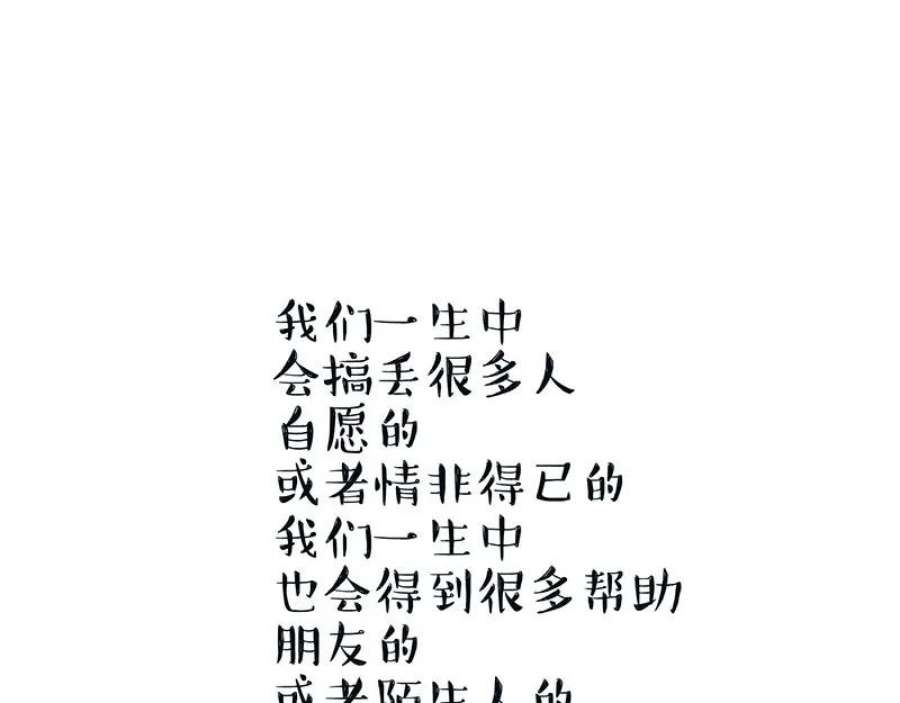 我们一生中
会搞丢很多人
自愿的
或者情非得已的
我们一生中
也会得到很多帮助
朋友的
或者陌生人的